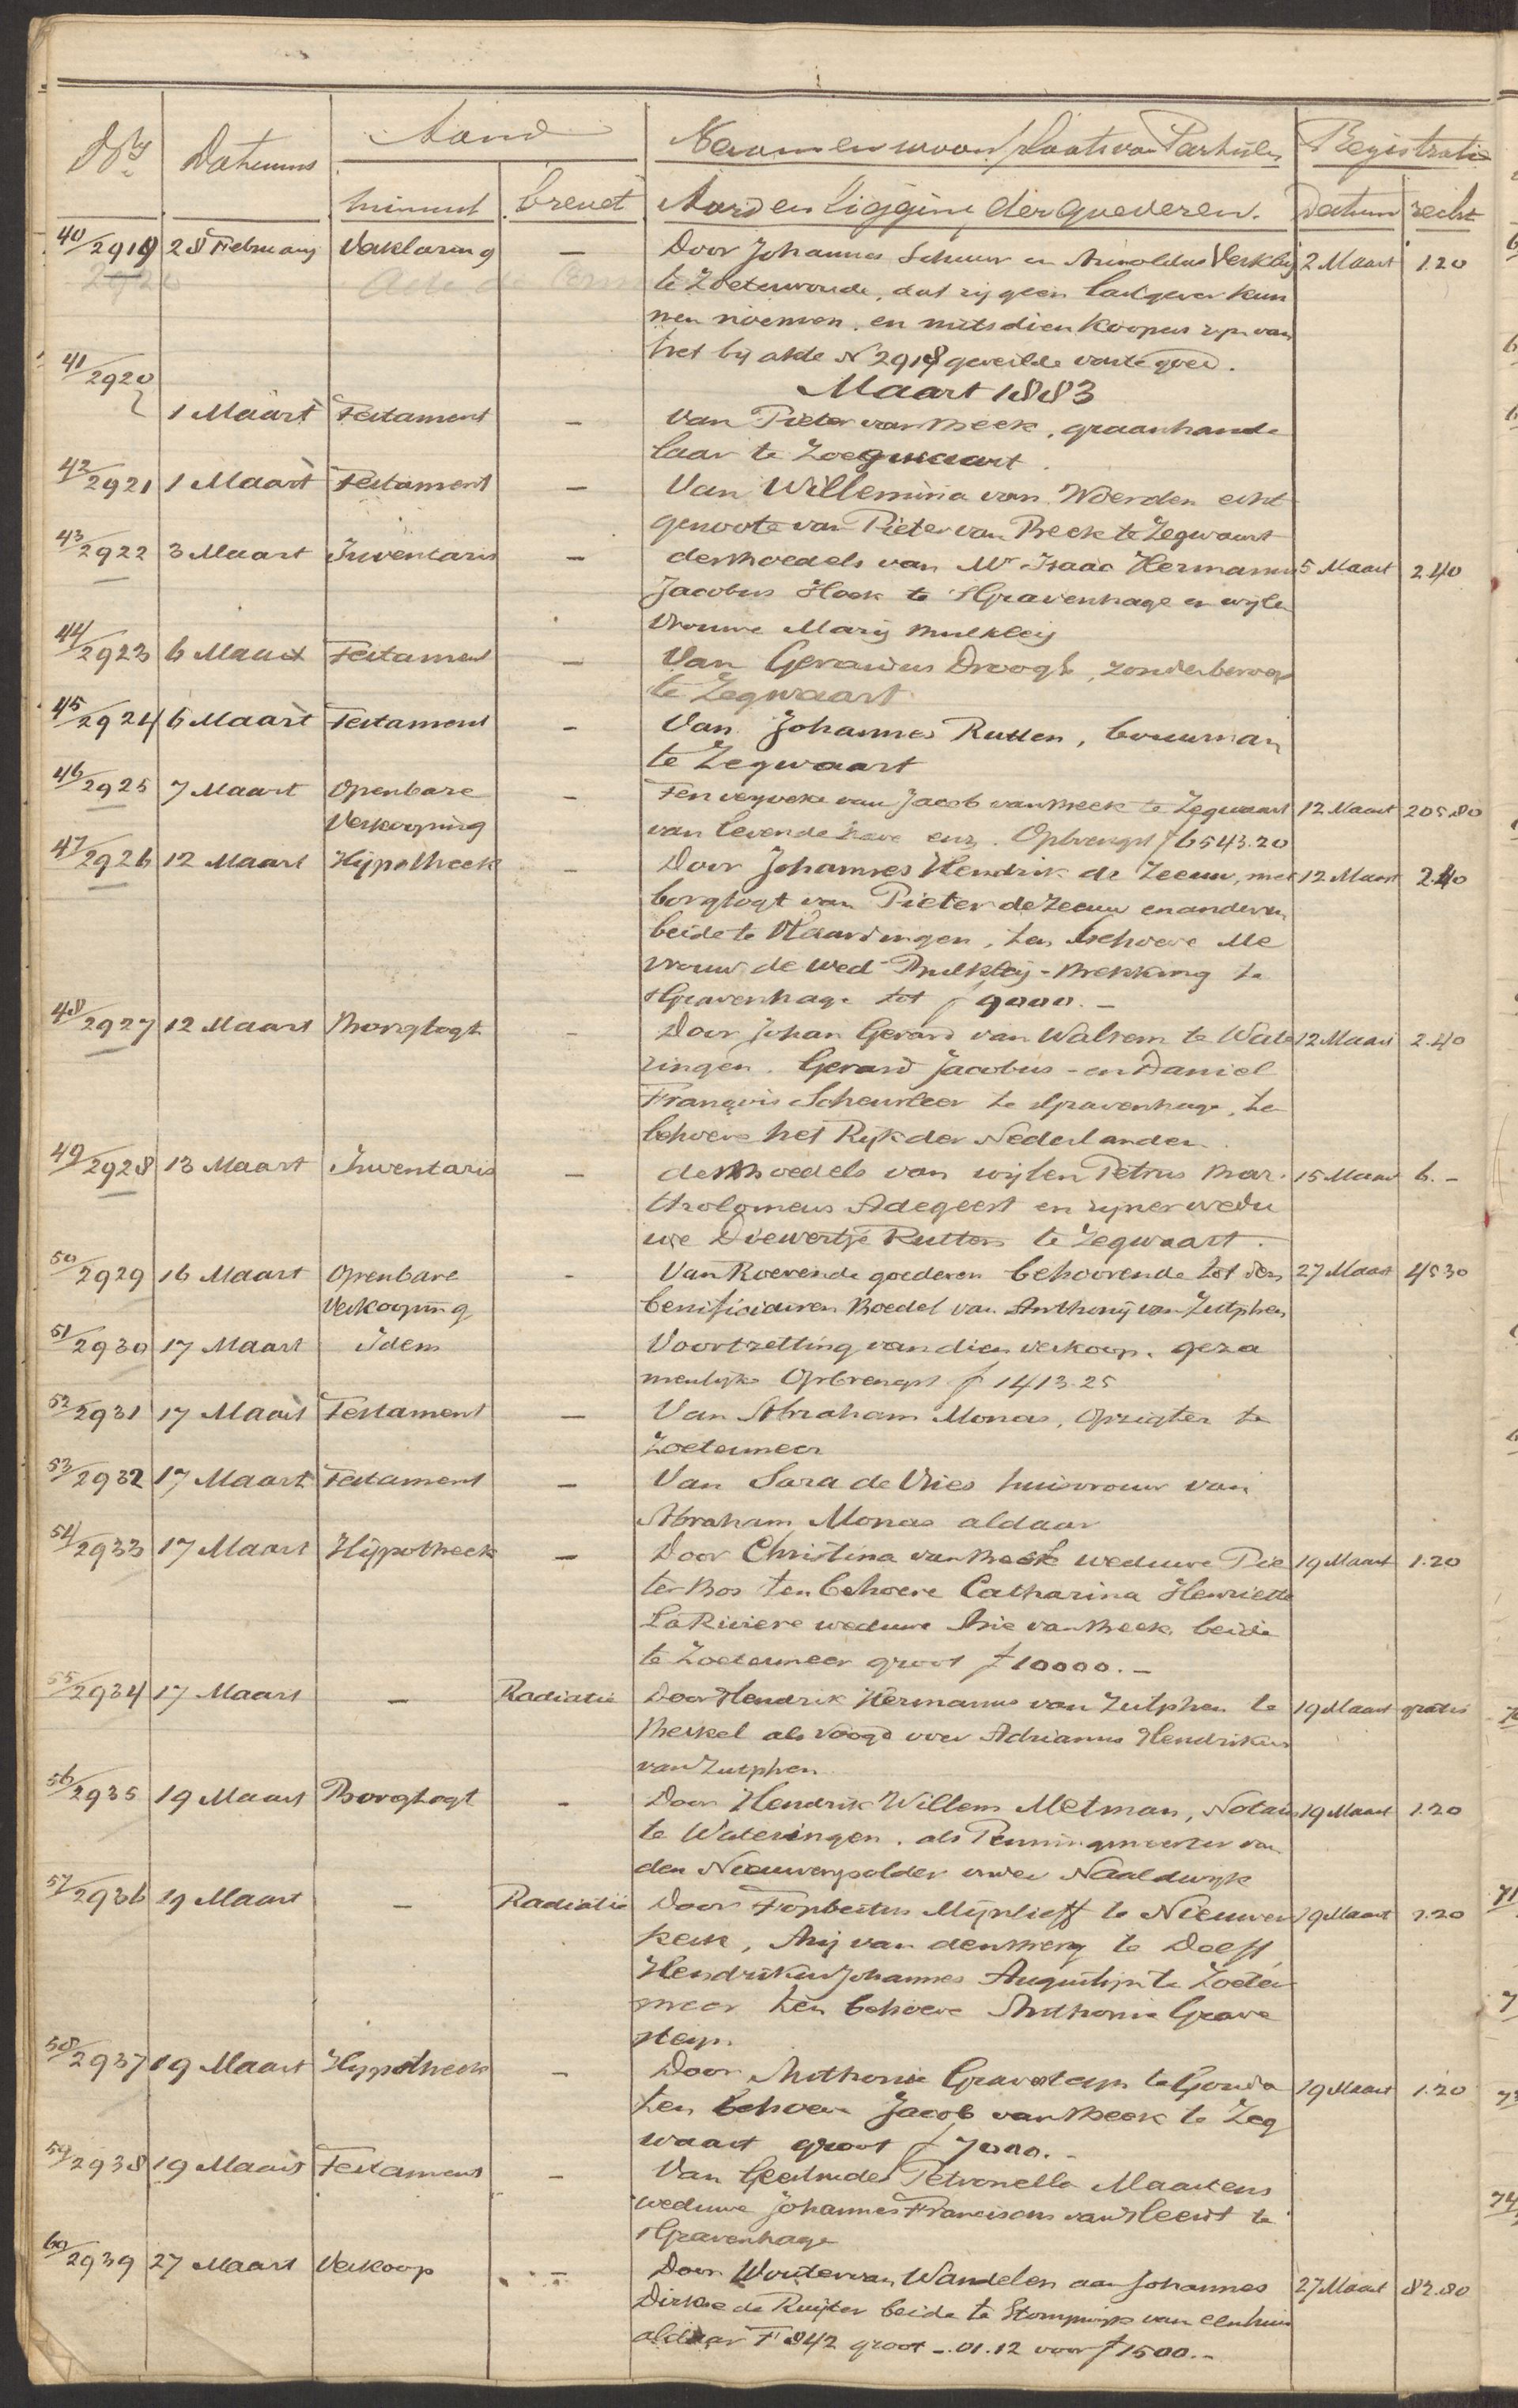 No. Datums Aard Naam en woonplaats van Partijen Registratie
minuut brevet Aard en ligging der goederen. Datum recht
40/2919 28 Februarij Verklaring — Door Johannes Schuur en Arnoldus Verkleij 2 Maart 1.20
te Zoeterwoude, dat zij geen lastgever kun
nen noemen, en mitsdien Koopers zijn van
het bij akte No 2918 geveilde vaste goed.
41/2920
Maart 1883
1 Maart Testament — Van Pieter van Beek, graanhande
laar te Zoegwaart.
42/2921 1 Maart Testament — Van Willemina van Woerden echt
genoote van Pieter van Beek te Zegwaart
43/2922 3 Maart Inventaris — des Boedels van Mr Isaac Hermanus 5 Maart 2.40
Jacobus Hoek te 'sGravenhage en wijlen
Vrouwe Marij Bulkleij
44/2923 6 Maart Testament — Van Gerardus Droogh, zonder beroep
te Zegwaart
45/2924 6 Maart Testament — Van Johannes Rutten, bouwman
te Zegwaart
46/2925 7 Maart Openbare — Ten verzoeke van Jacob van Beek te Zegwaart 12 Maart 205.80
Verkooping van levende have enz. Opbrengst f 6543.20
47/2926 12 Maart Hijpotheek — Door Johannes Hendrik de Zeeuw, met 12 Maart 2.40
borgtogt van Pieter de Zeeuw en anderen
beide te Vlaardingen, ten behoeve Me
vrouw de Wed Bulkleij-Bekking te
'sGravenhage tot f 9000.-
48/2927 12 Maart Borgtogt — Door Johan Gerard van Walsem te Wate 12 Maart 2.40
ringen. Gerard Jacobus - en Daniel
François Scheurleer te sGravenhage, te
behoeve het Rijk der Nederlanden.
49/2928 13 Maart Inventaris — des Boedels van wijlen Petrus Bar- 15 Maart 6.-
tholomeus Adegeest en zijner wedu
we Diewertje Rutten te Zegwaart.
50/2929 16 Maart Openbare - Van Roerende goederen behoorende tot den 27 Maart 45.30
Verkooping benificiairen Boedel van Anthonij van Zutphen
51/2930 17 Maart Idem Voortzetting van dien verkoop. geza
menlijke Opbrengst f 1413.25
52/2931 17 Maart Testament — Van Abraham Monas, Opzigter te
Zoetermeer
53/2932 17 Maart Testament — Van Sara de Vries huisvrouw van
Abraham Monas aldaar
54/2933 17 Maart Hijpotheek — Door Christina van Beek weduwe Pie 19 Maart 1.20
ter Bos ten behoeve Catharina Henriette
La Riviere weduwe Arie van Beek, beide
te Zoetermeer groot f 10000.-
55/2934 17 Maart — Radiatie Door Hendrik Hermanus van Zutphen te 19 Maart gratis
Berkel als voogd over Adrianus Hendrikus
van Zutphen
56/2935 19 Maart Borgtogt - Door Hendrik Willem Metman, Notaris 19 Maart 1.20
te Wateringen. als Penningmeester van
den Nieuwenpolder onder Naaldwijk
57/2936 19 Maart — Radiatie Door Fopbertus Mijnlieff te Nieuwer 19 Maart 1.20
kerk, Arij van den Berg te Delft,
Hendrikus Johannes Augustijn te Zoeter
meer ten behoeve Anthonie Grave
steijn.
58/2937 19 Maart Hypotheek — Door Anthonie Gravesteijn te Gouda 19 Maart 1.20
ten behoeve Jacob van Beek te Zeg
waart groot f 7000.-
59/2938 19 Maart Testament — Van Geertrudes Petronella Maartens
weduwe Johannes Franciscus van Heerst te
'sGravenhage
60/2939 27 Maart Verkoop — Door Wouter van Wandelen aan Johannes 27 Maart 82.80
Dirkse de Ruijter beide te Stompwijk van een huis
aldaar F 842 groot -.01.12 voor f 1500.-